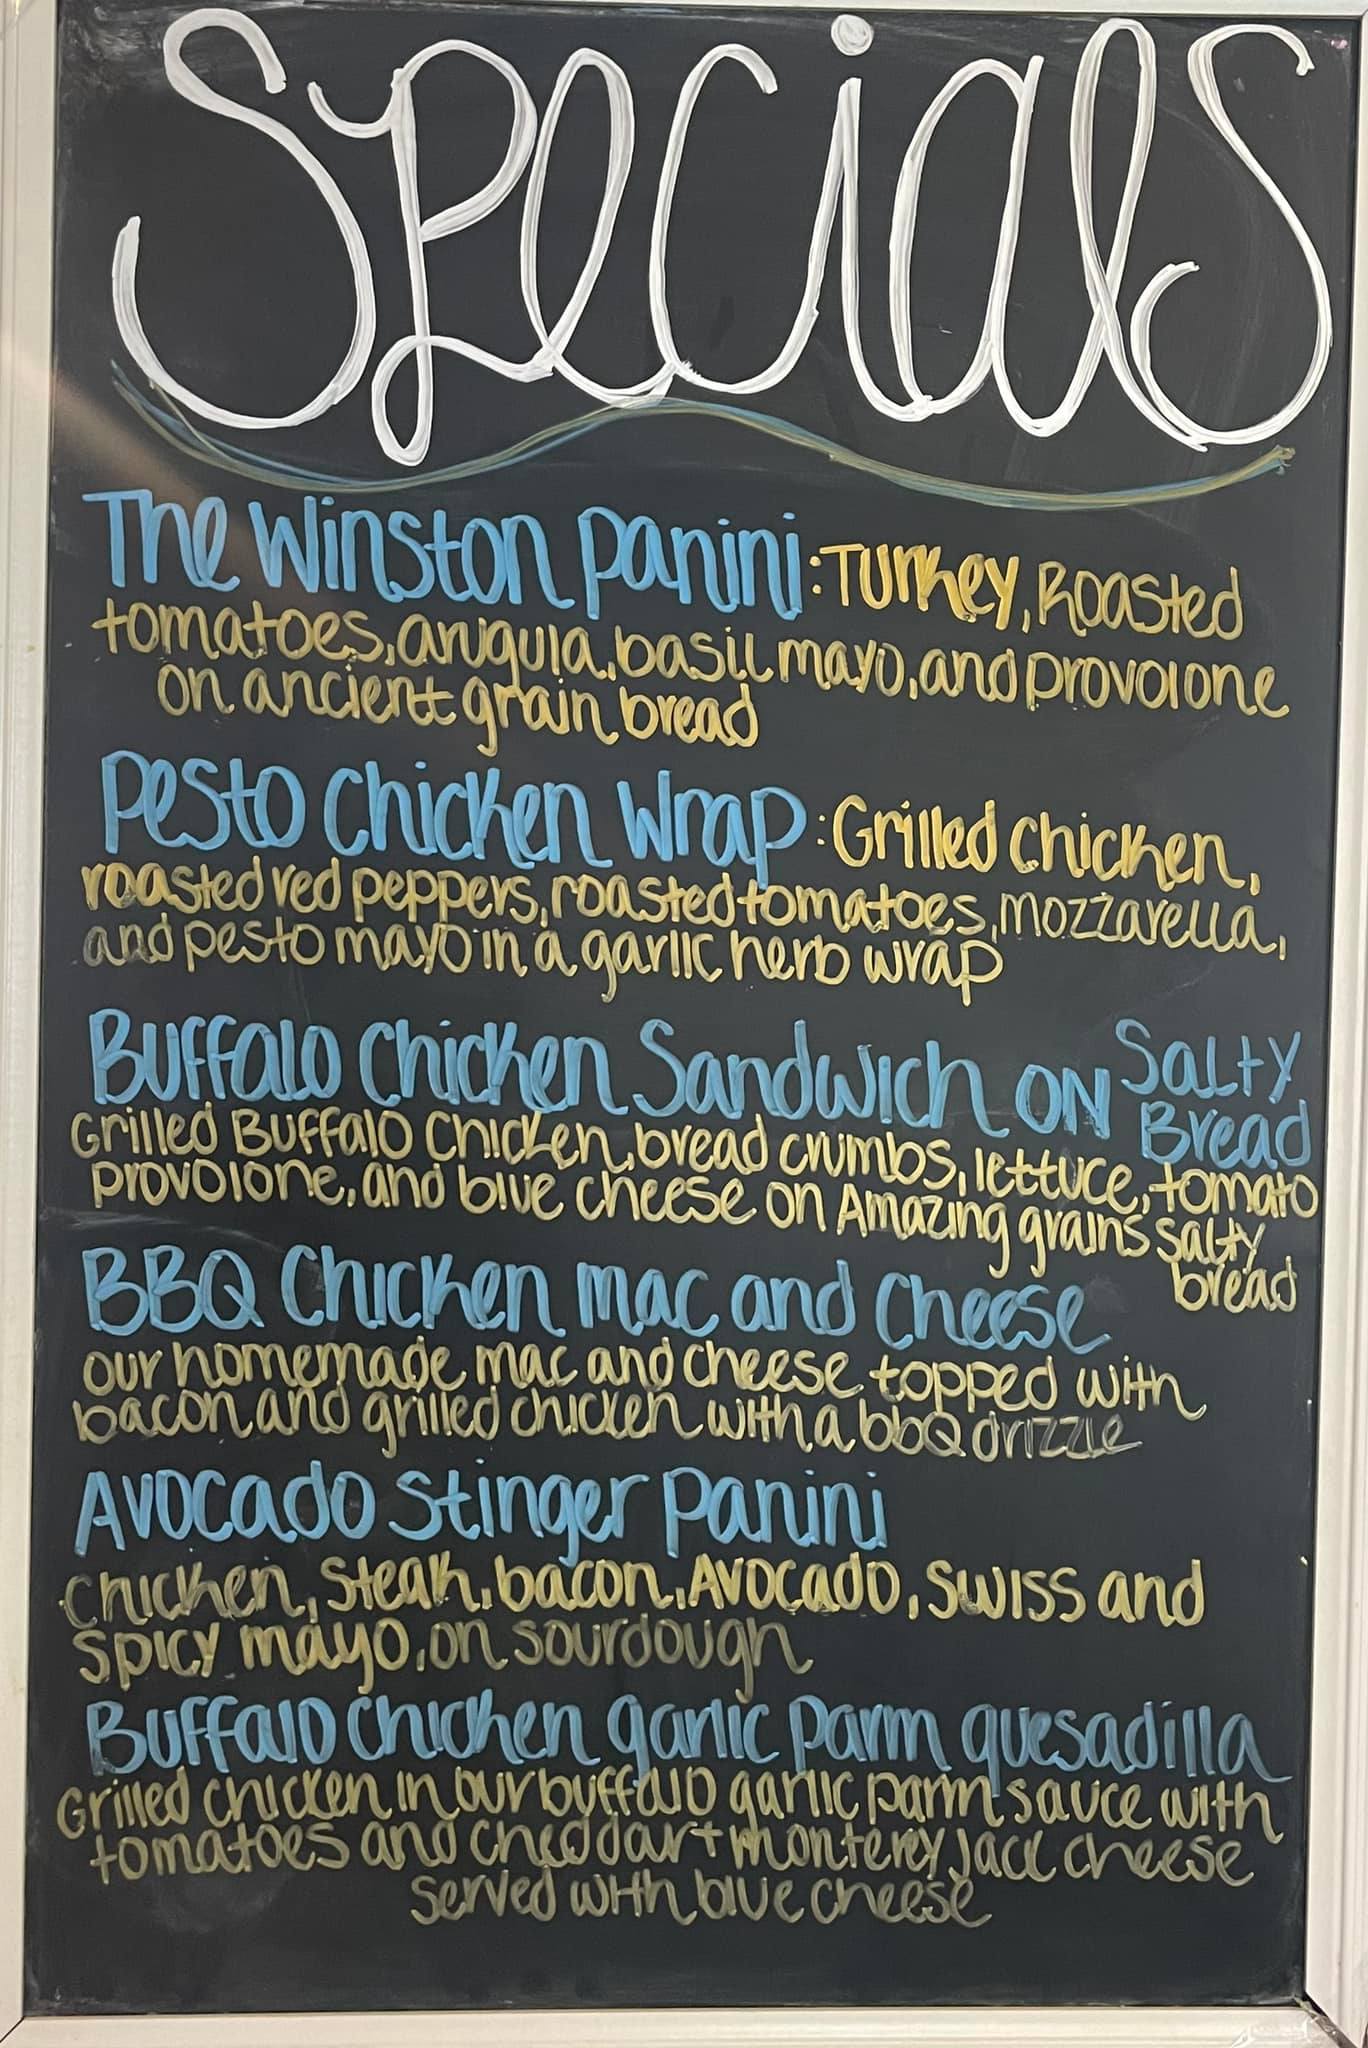 Specials
The Winston Panini: Turkey, Roasted
tomatoes, arugula, basil mayo, and provolone
on ancient grain bread
Pesto Chicken Wrap: Grilled chicken,
roasted red peppers, roasted tomatoes, mozzarella,
and pesto mayo in a garlic herb wrap
Buffalo Chicken Sandwich on Salty
Bread
Grilled Buffalo Chicken, bread crumbs, lettuce, tomato
provolone, and blue cheese on Amazing grains salty
bread
BBQ Chicken mac and Cheese
our homemade mac and cheese topped with
bacon and grilled chicken with a bbQ drizzle
Avocado Stinger Panini
Chicken, Steak, bacon, Avocado, Swiss and
Spicy mayo, on sourdough
Buffalo Chicken garlic parm quesadilla
Grilled chicken in our buffalo garlic parm sauce with
tomatoes and cheddar + monterey jack cheese
served with blue cheese